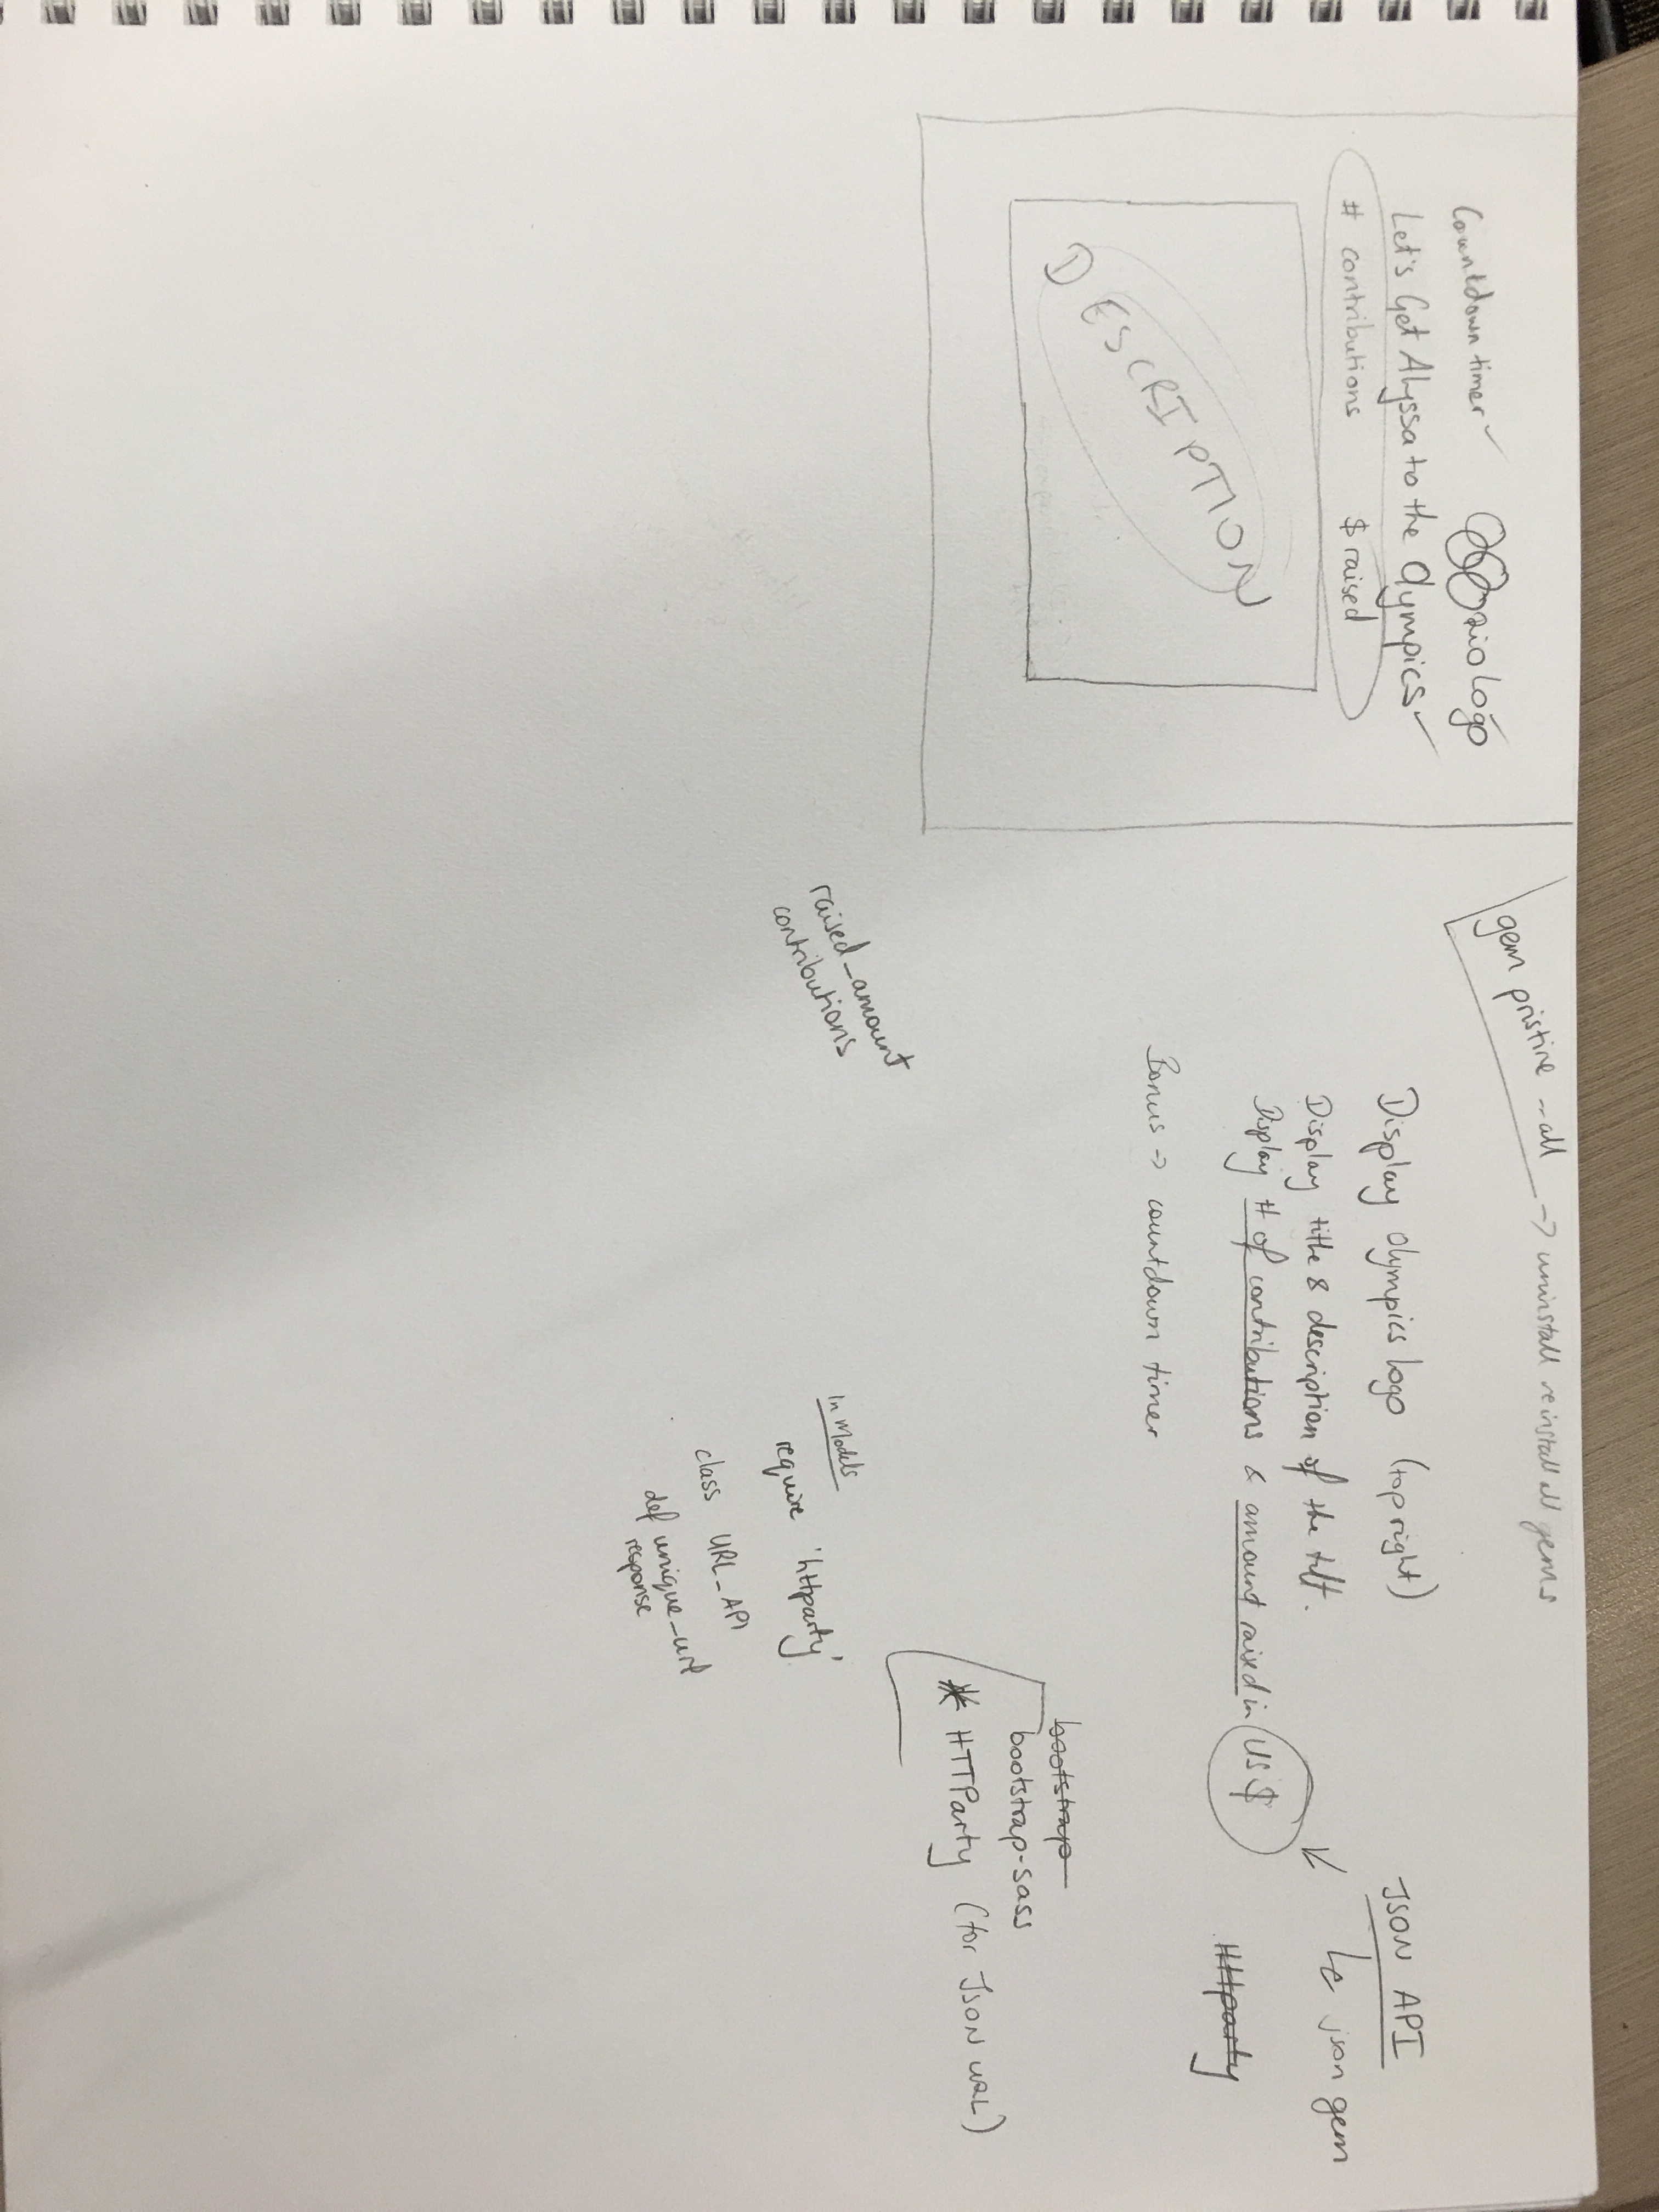 Countdown timer
Rio Logo
Let's Get Alyssa to the Olympics
# contributions $ raised
DESCRIPTION
gem pristine --all -> uninstall reinstall all gems
Display Olympics Logo (top right)
Display title & description of the tilt.
Display # of contributions & amount raised in US $
Bonus -> countdown timer
JSON API
json gem
HTTparty
bootstrap
bootstrap-sass
* HTTParty (for JSON URL)
raised_amount
contributions
In Models
require 'httparty'
class URL_API
def unique_url
response